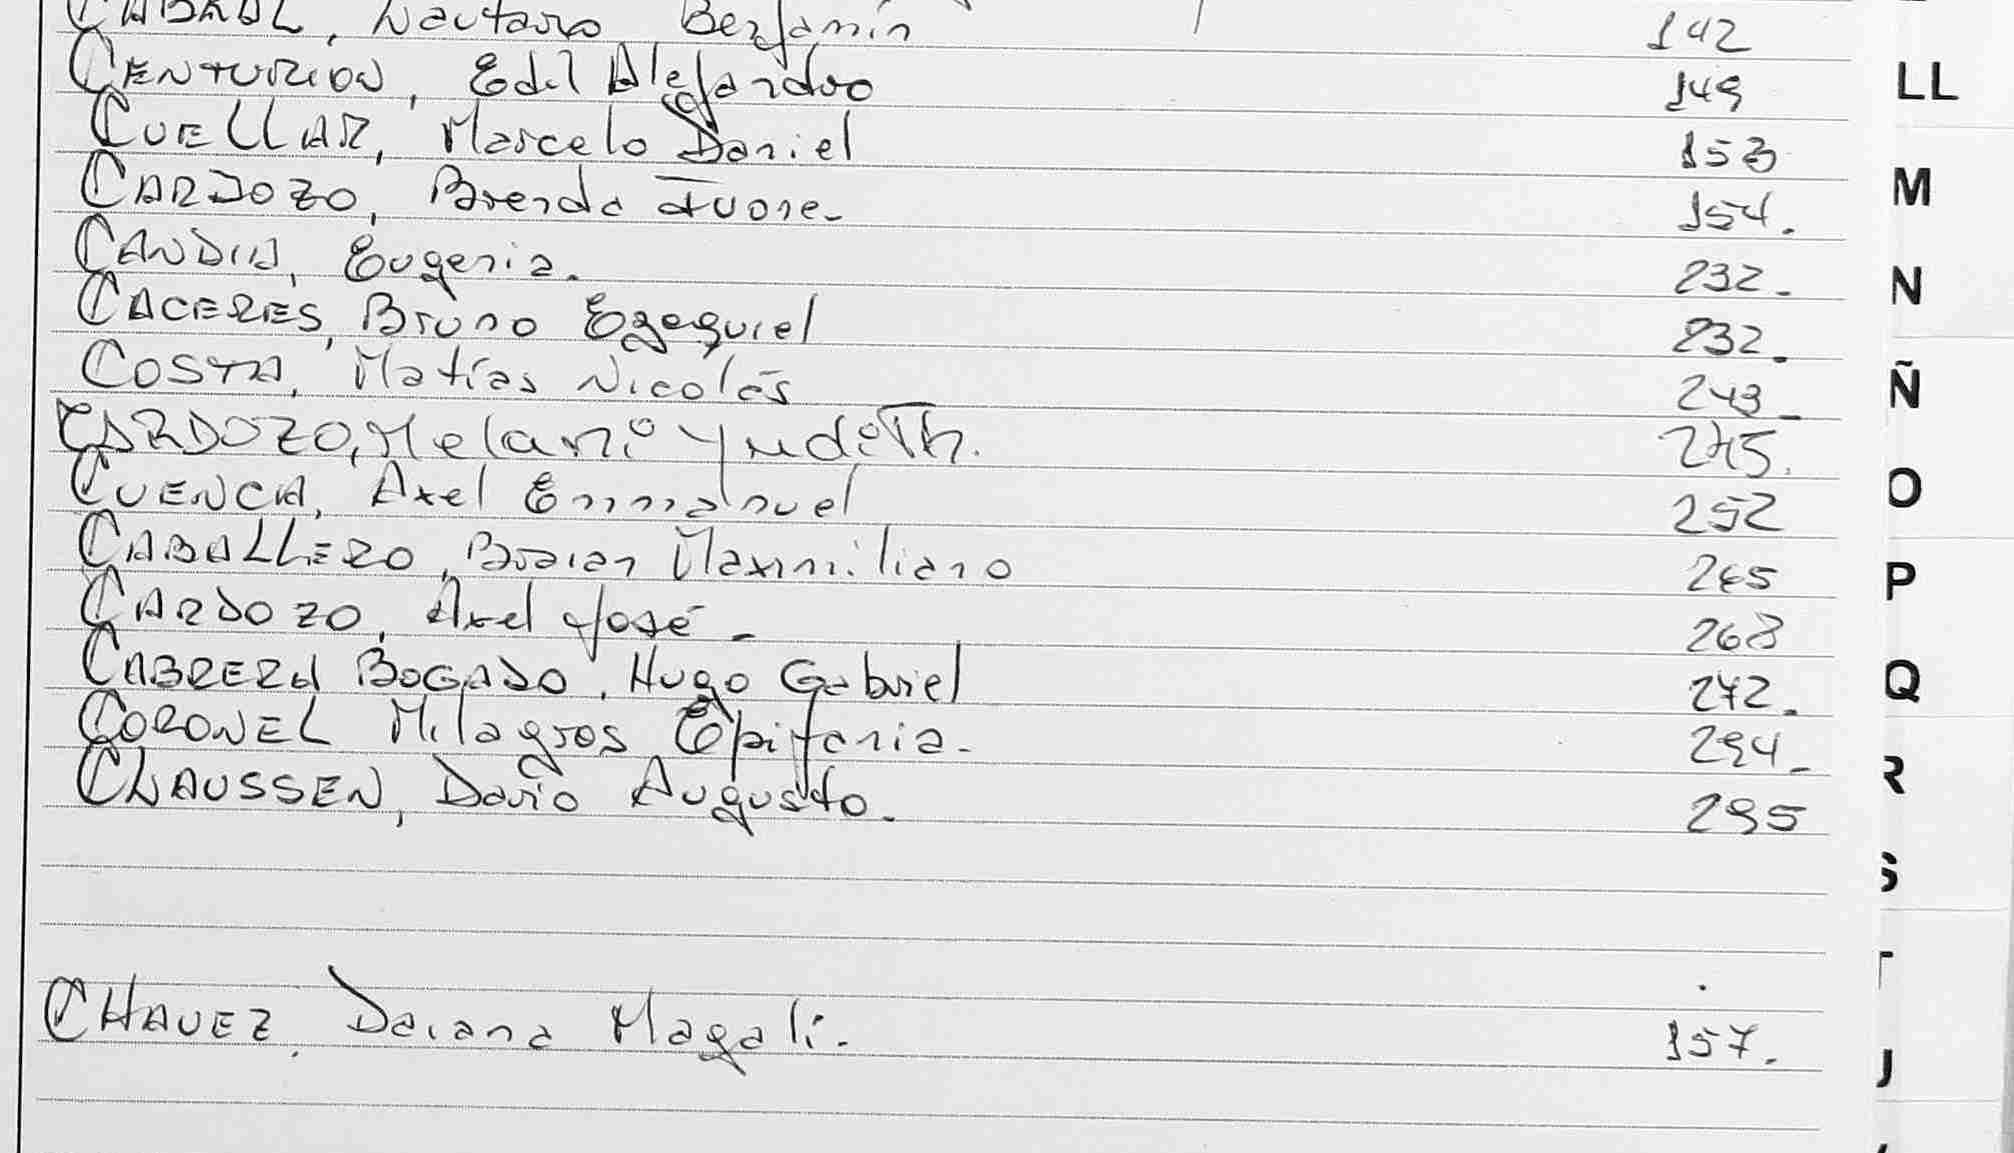 CABRAL, Lautaro Benjamín 142
CENTURION, Edil Alejandro 149
CUELLAR, Marcelo Daniel 153
CARDOZO, Brenda Ivone. 154.
CANDIA, Eugenia. 232.
CACERES, Bruno Ezequiel 232.
COSTA, Matías Nicolás 243
CARDOZO, Melani Yudith. 245.
CUENCA, Axel Emmanuel 252
CABALLERO, Braian Maximiliano 265
CARDOZO, Axel José. 268
CABRERA BOGADO, Hugo Gabriel 272.
CORONEL Milagros Epifania. 294
CLAUSSEN, Darío Augusto. 295
CHAVEZ, Daiana Magali. 157.
LL
M
N
Ñ
O
P
Q
R
S
T